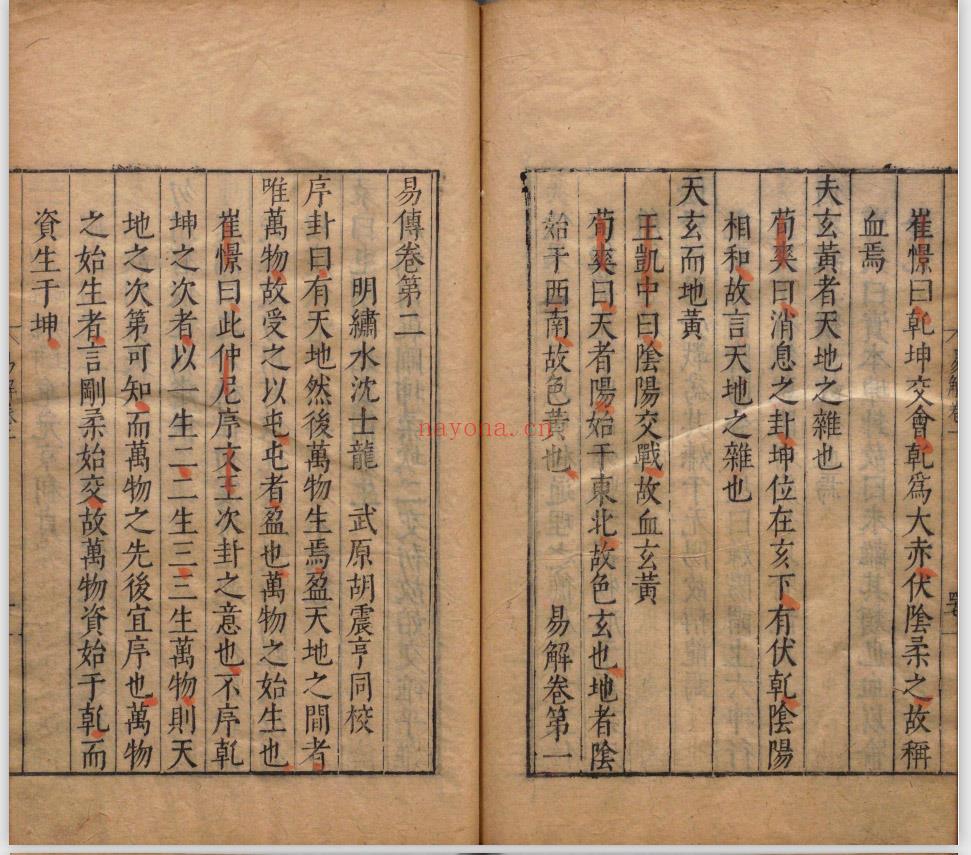 崔憬曰乹坤交會乹爲大赤伏陰柔之故稱
血焉
夫玄黃者天地之雜也
荀爽曰消息之卦坤位在亥下有伏乹陰陽
相和故言天地之雜也
天玄而地黃
王凱中曰陰陽交戰故血玄黃
荀爽曰天者陽始于東北故色玄也地者陰
始于西南故色黃也
易解卷第一
易傳卷第二
明繡水沈士龍 武原胡震亨同校
序卦曰有天地然後萬物生焉盈天地之間者
唯萬物故受之以屯屯者盈也萬物之始生也
崔憬曰此仲尼序文王次卦之意也不序乹
坤之次者以一生二二生三三生萬物則天
地之次第可知而萬物之先後宜序也萬物
之始生者言剛柔始交故萬物資始于乹而
資生于坤
nayona.cn